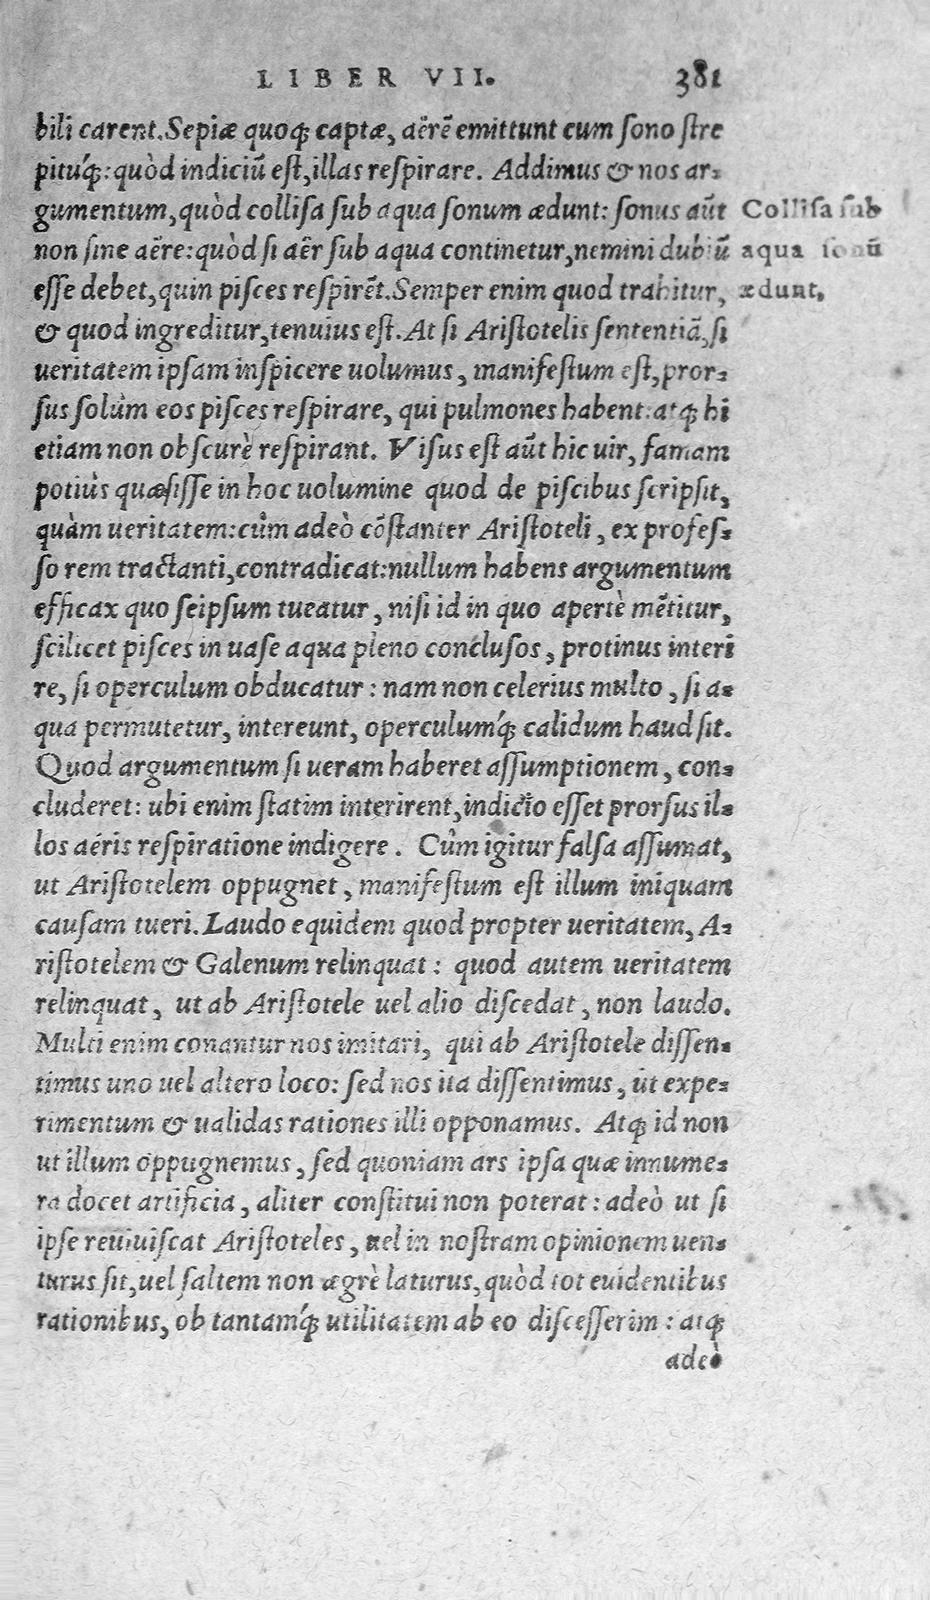 LIBER VII. 381
bili carent. Sepiæ quoq; captæ, aërẽ emittunt cum sono stre
pituq́;: quòd indiciũ est, illas respirare. Addimus & nos ar-
gumentum, quòd collisa sub aqua sonum ædunt: sonus aũt
non sine aëre: quòd si aër sub aqua continetur, nemini dubiũ
esse debet, quin pisces respirẽt. Semper enim quod trahitur,
& quod ingreditur, tenuius est. At si Aristotelis sententiã, si
ueritatem ipsam inspicere uolumus, manifestum est, pror-
sus solùm eos pisces respirare, qui pulmones habent: atq; hi
etiam non obscurè respirant. Visus est aũt hic uir, famam
potiùs quæsisse in hoc uolumine quod de piscibus scripsit,
quàm ueritatem: cùm adeò cõstanter Aristoteli, ex profes-
so rem tractanti, contradicat: nullum habens argumentum
efficax quo seipsum tueatur, nisi id in quo apertè mẽtitur,
scilicet pisces in uase aqua pleno conclusos, protinus interi
re, si operculum obducatur: nam non celerius multo, si a-
qua permutetur, intereunt, operculumq́; calidum haud sit.
Quod argumentum si ueram haberet assumptionem, con-
cluderet: ubi enim statim interirent, indicio esset prorsus il-
los aëris respiratione indigere. Cùm igitur falsa assumat,
ut Aristotelem oppugnet, manifestum est illum iniquam
causam tueri. Laudo equidem quod propter ueritatem, A-
ristotelem & Galenum relinquat: quod autem ueritatem
relinquat, ut ab Aristotele uel alio discedat, non laudo.
Multi enim conantur nos imitari, qui ab Aristotele dissen-
timus uno uel altero loco: sed nos ita dissentimus, ut expe-
rimentum & ualidas rationes illi opponamus. Atq; id non
ut illum oppugnemus, sed quoniam ars ipsa quæ innume-
ra docet artificia, aliter constitui non poterat: adeò ut si
ipse reuiuiscat Aristoteles, uel in nostram opinionem uen-
turus sit, uel saltem non ægrè laturus, quòd tot euidentibus
rationibus, ob tantamq́; utilitatem ab eo discesserim: atq;
adeò
Collisa sub
aqua sonũ
ædunt.